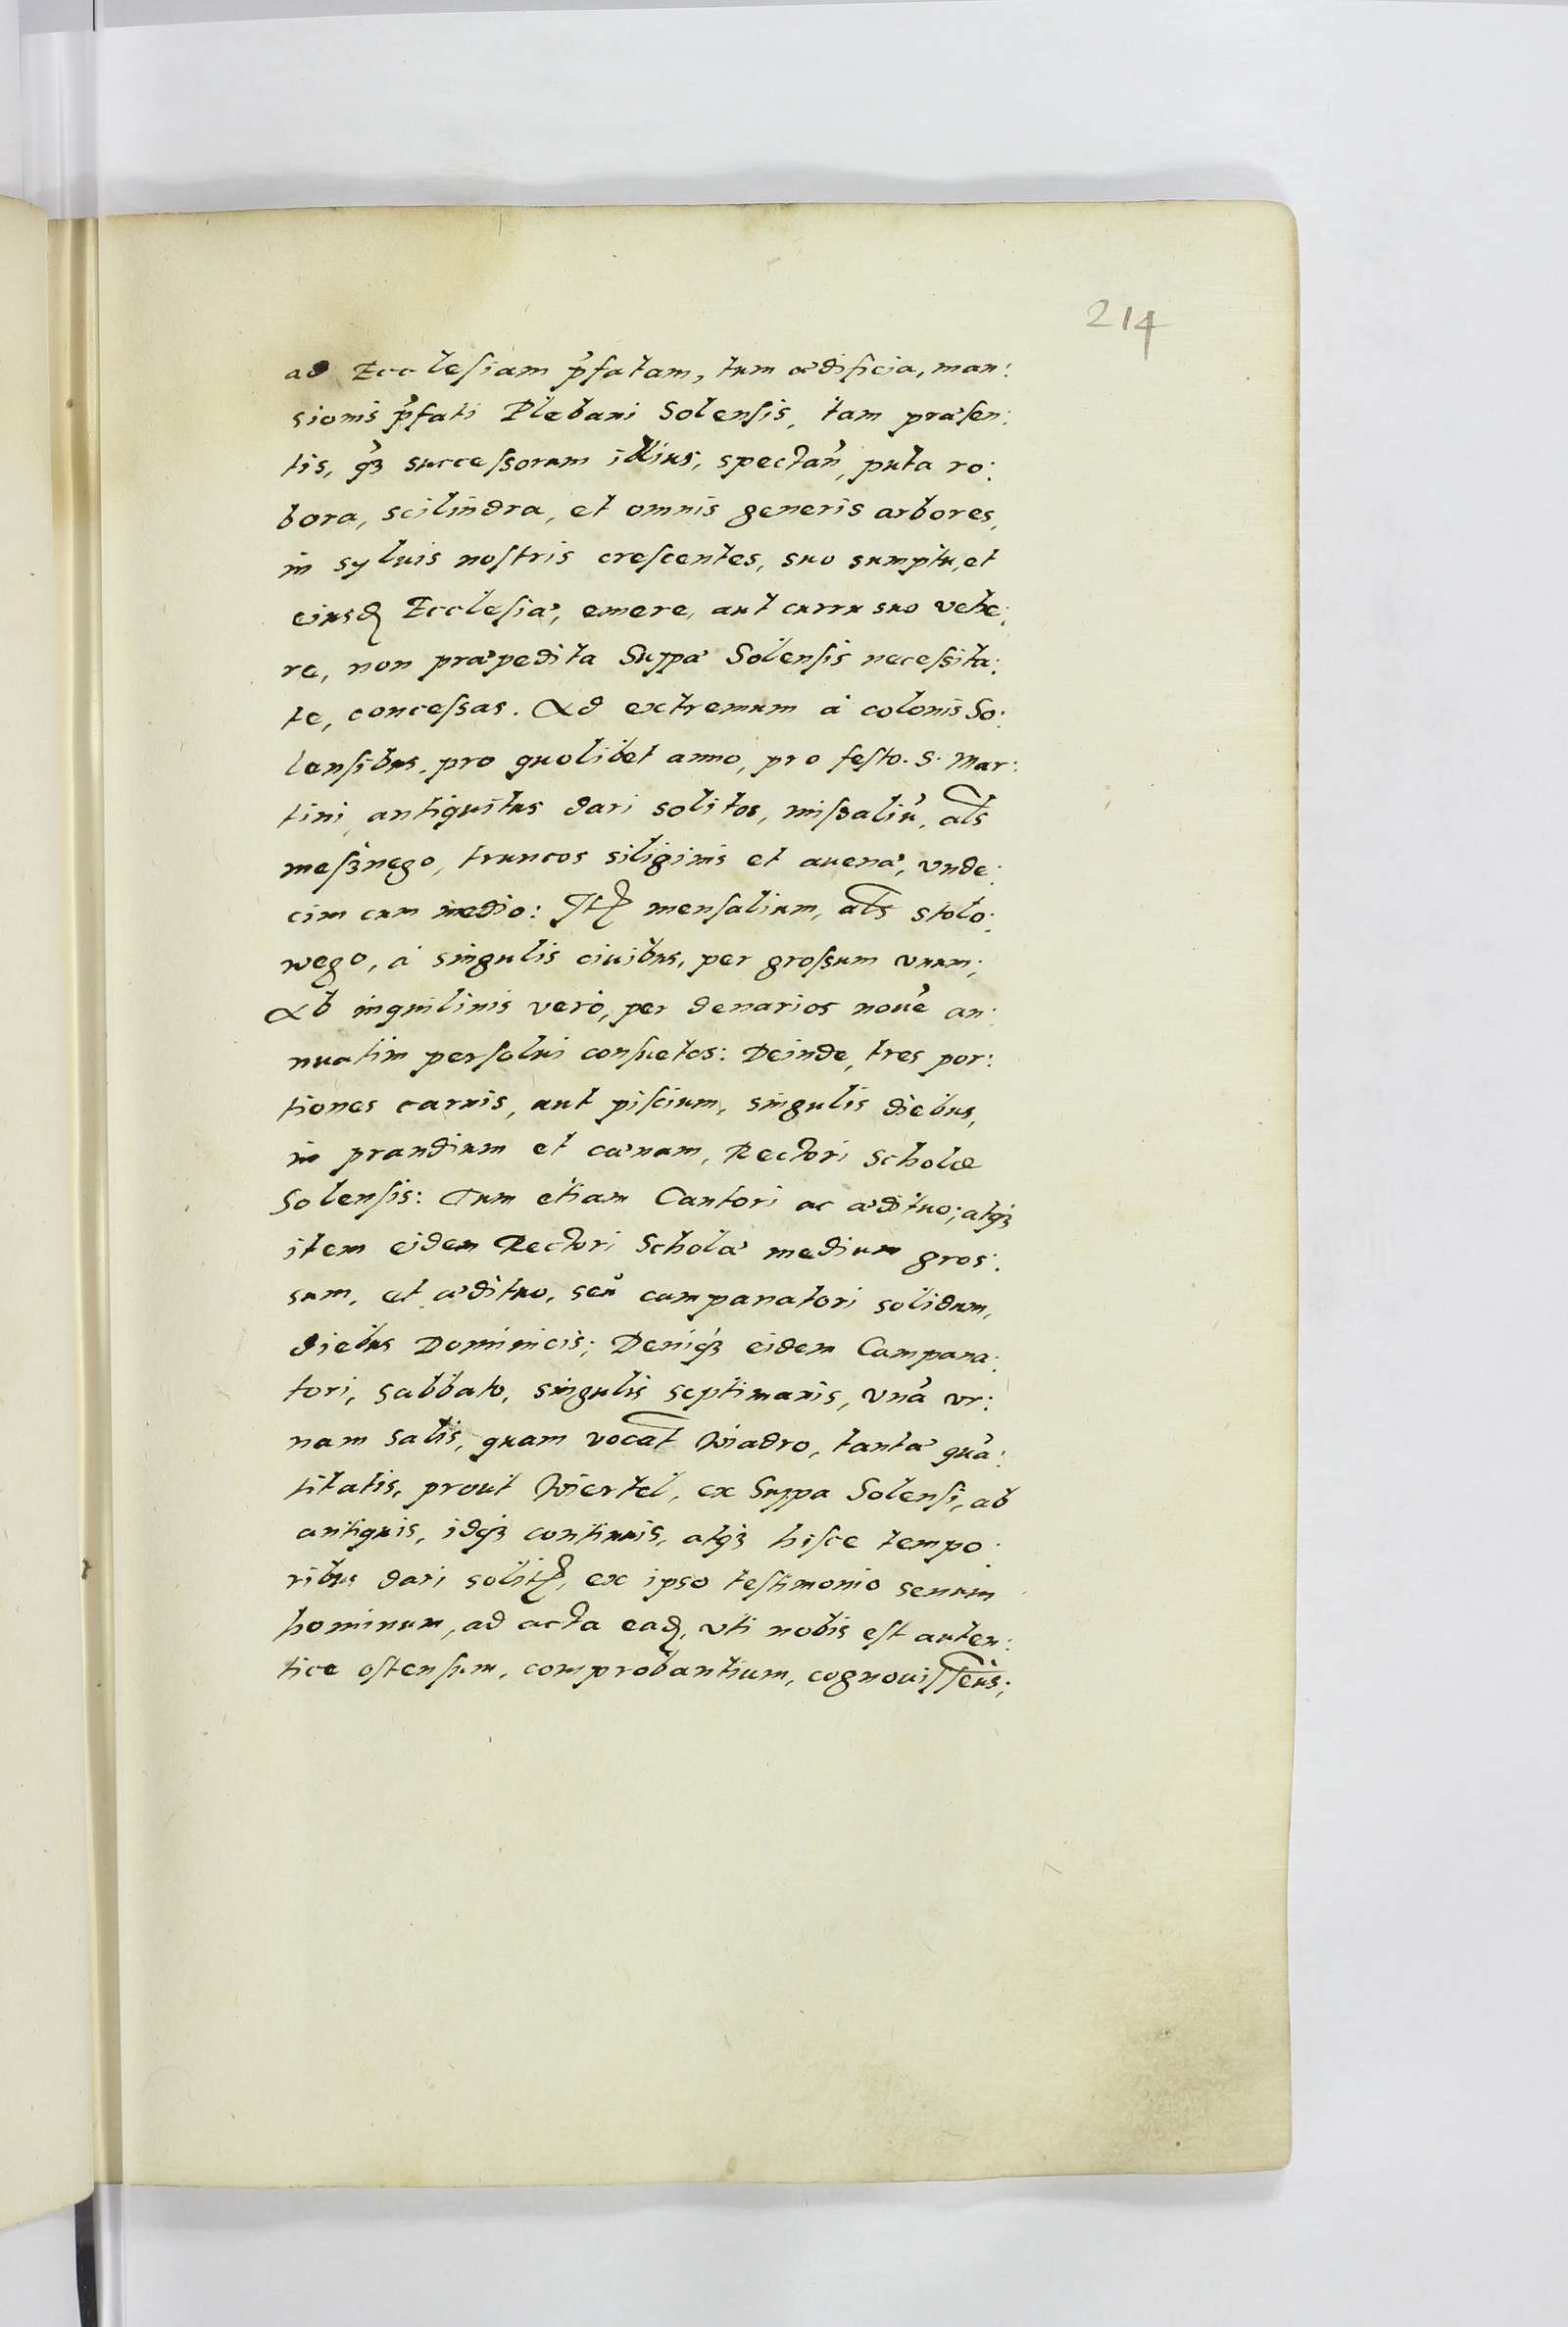 214
ad Ecclesiam p̉fatam, tum ædificia, man:
sionis p̉fati Plebani Solensis, tam præsen:
tis, q̉ꝫ successorum illius, spectan̉, puta ro:
bora, scilindra, et omnis generis arbores,
in syluis nostris crescentes, suo sumptu, et
eiusdꝫ Ecclesiæ, emere, aut curru suo vehe:
re, non præpedita Suppæ Solensis necessita:
te, concessas. Ad extremum à colonis So:
lensibus, pro quolibet anno, pro festo S. Mar:
tini, antiquitus dari solitos, missaliũ, als
meßnego, truncos siliginis et auenæ, vnde:
cim cum medio: Itꝫ mensalium, als stolo:
wego, à singulis ciuibus, per grossum vnum;
Ab inquilinis verò, per denarios nouẽ an:
nuatim persolui consuetos: Deinde, tres por:
tiones carnis, aut piscium, singulis diebus,
in prandium et cænam, Rectori Scholæ
Solensis: Tum etiam Cantori ac ædituo; atqꝫ
item eidem Rectori Scholæ medium gros:
sum, et ædituo, seu campanatori solidum,
diebus Dominicis; Deniqꝫ eidem Campana:
tori, sabbato, singulis septimanis, vnã vr:
nam salis, quam vocãt Wiadro, tantæ quã:
titatis, prout Wiertel, ex Suppa Solensi, ab
antiquis, idqꝫ continuis, atqꝫ hisce tempo:
ribus dari solitꝫ, ex ipso testimonio senum
hominum, ad acta eadꝫ, vti nobis est auten:
tice ostensum, comprobantium, cognouissẽus;